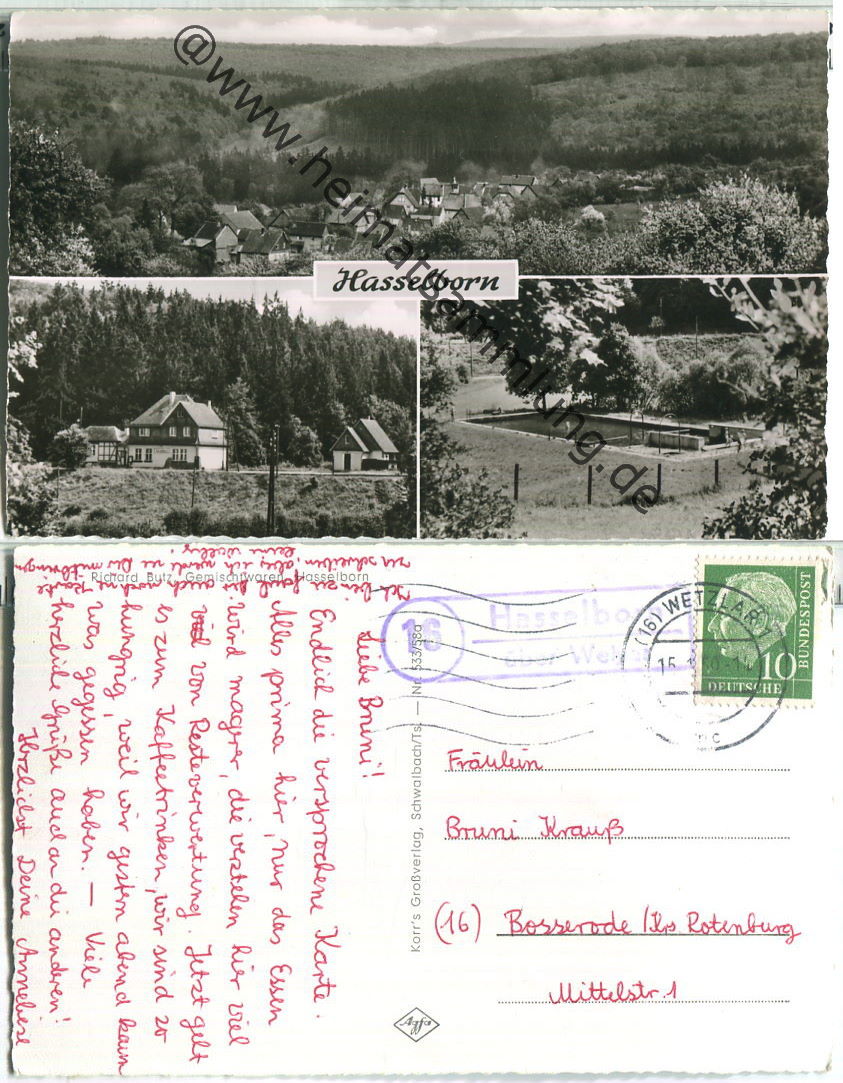 @www.heimatsammlung.de
Hasselborn
Richard Butz, Gemischtwaren, Hasselborn
Liebe Bruni!
Endlich die versprochene Karte.
Alles prima hier, nur das Essen
wird magrer, die verstehen hier viel
von Resteverwertung. Jetzt geht
es zum Kaffeetrinken, wir sind so
hungrig, weil wir gestern abend kaum
was gegessen haben. — Viele
herzliche Grüße auch an die anderen!
Herzlichst Deine Anneliese
Ich bin zu faul
zu schreiben, aber ich
auch noch ne Karte
16
Hasselborn
über Wetzlar
(16) WETZLAR 1
15.
DEUTSCHE
BUNDESPOST
10
Korr's Großverlag, Schwalbach/Ts. — Nr. 533/58a
Fräulein
Bruni Krauß
(16) Bosserode /Krs Rotenburg
Mittelstr. 1
Agfa